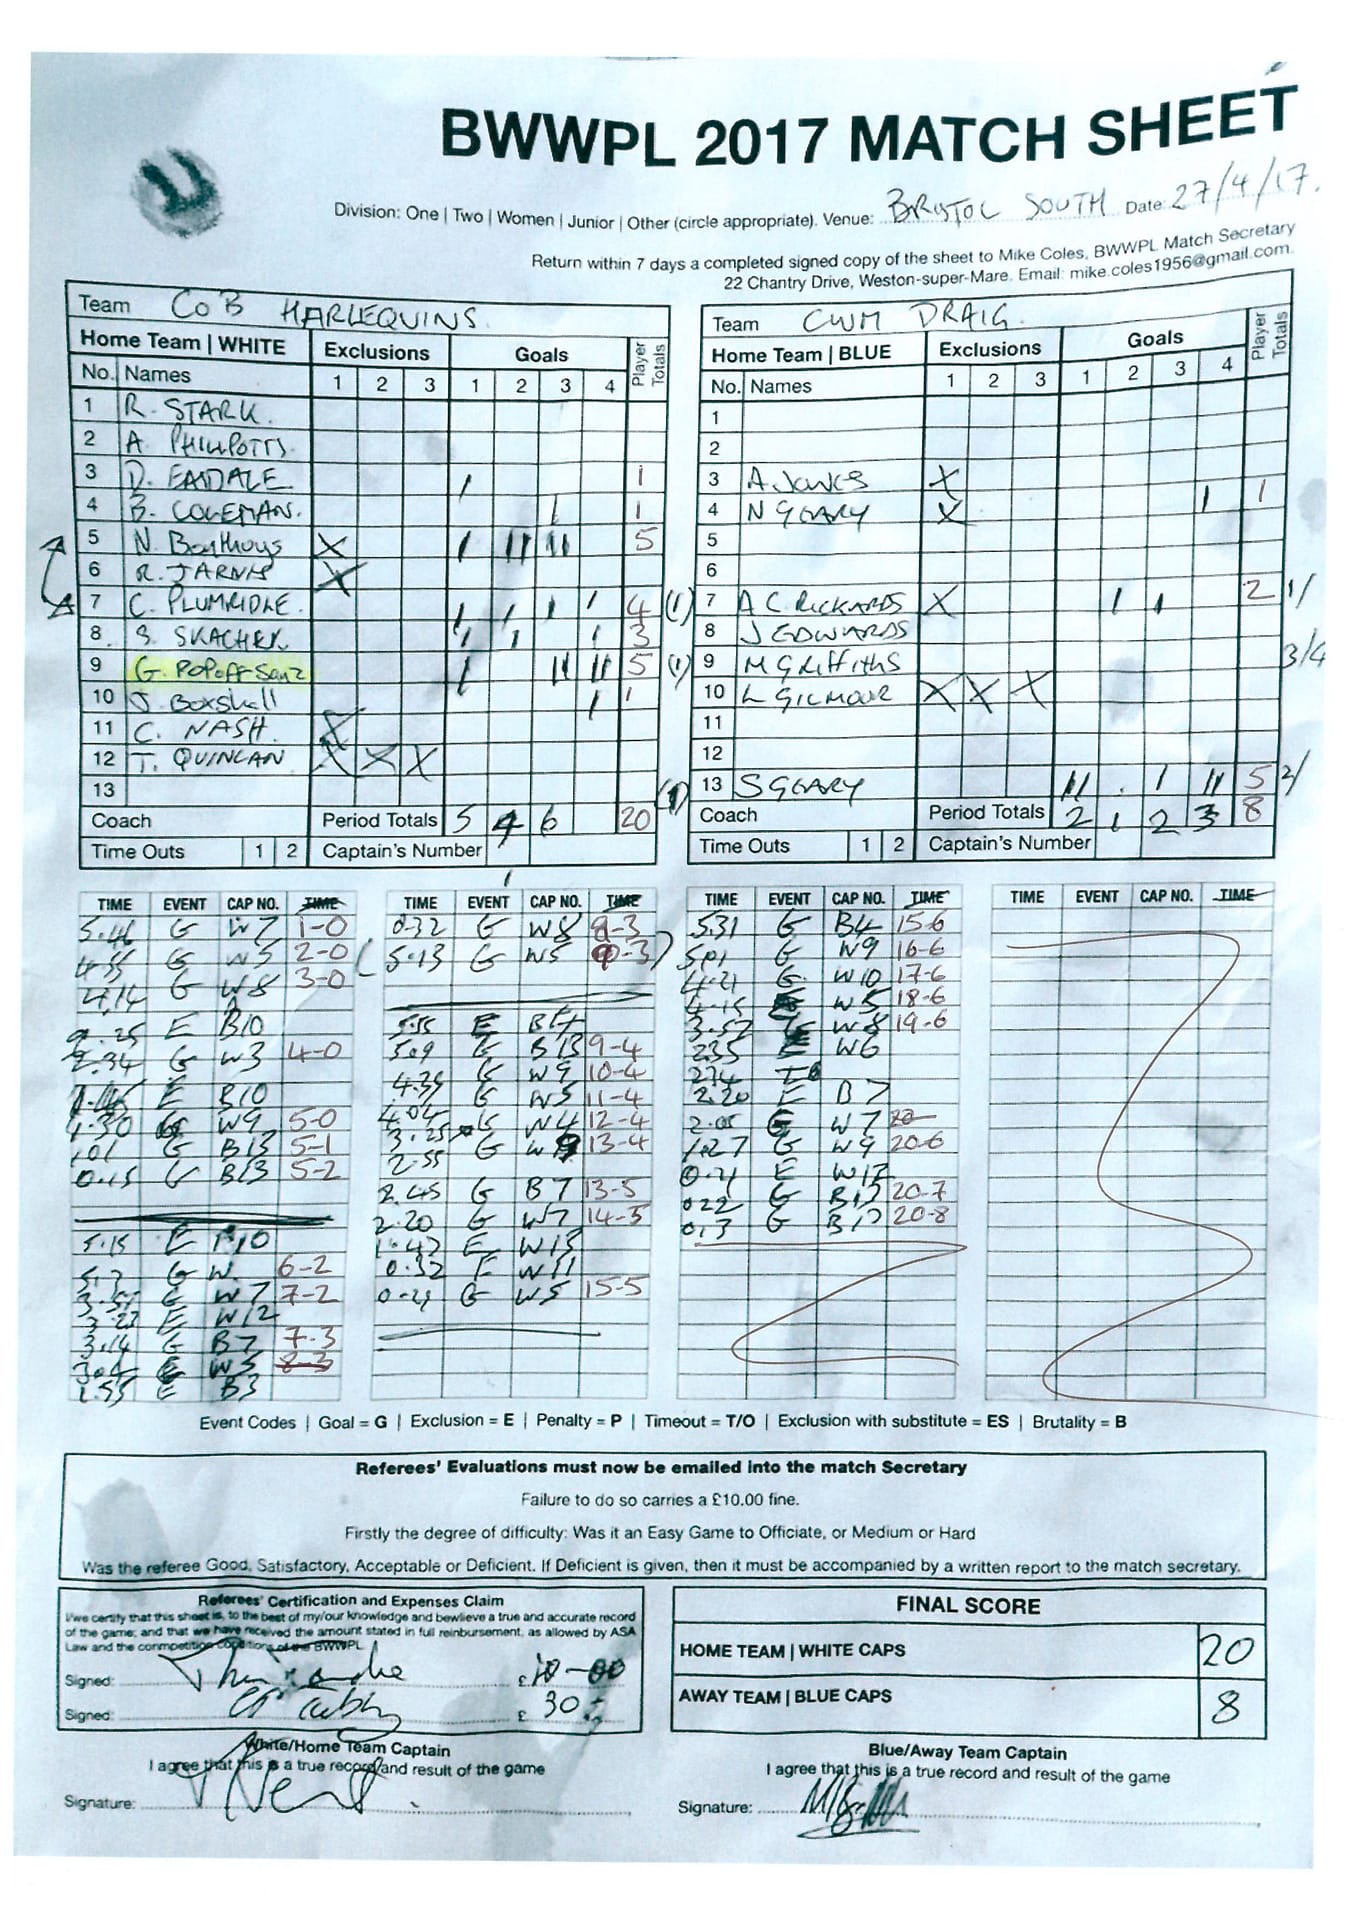 BWWPL 2017 MATCH SHEET
Division: One | Two | Women | Junior | Other (circle appropriate). Venue: BRISTOL SOUTH Date: 27/4/17.
Return within 7 days a completed signed copy of the sheet to Mike Coles, BWWPL Match Secretary
22 Chantry Drive, Weston-super-Mare. Email: mike.coles1956@gmail.com.
Team CoB HARLEQUINS
Home Team | WHITE Exclusions Goals Player Totals
No. Names 1 2 3 1 2 3 4
1 R. STARK.
2 A. PHILLPOTTS.
3 D. EASDALE 1
4 B. COLEMAN. 1
5 N. Bonthuys X 5
6 R. JARVIS X
7 C. PLUMRIDLE. 4
8 S. SKACHEK 3
9 G. POPOFF Sanz 5
10 J. Boxshall 1
11 C. NASH. X
12 T. QUINLAN X X X
13
Coach Period Totals 5 4 6 20
Time Outs 1 2 Captain's Number
Team CWM DRAIG.
Home Team | BLUE Exclusions Goals Player Totals
No. Names 1 2 3 1 2 3 4
1
2
3 A JONES X
4 N GEARY X 1
5
6
(1) 7 A C. RICKARDS X 2 1/
8 J EDWARDS
(1) 9 M Griffiths 3/4
10 L GILMOUR X X X
11
12
(1) 13 S GEARY 5 2/
Coach Period Totals 2 1 2 3 8
Time Outs 1 2 Captain's Number
TIME EVENT CAP NO. TIME
5.46 G W7 1-0
4.55 G W5 2-0
4.14 G W8 3-0
E B10
2.34 G W3 4-0
E B10
1.30 G W9 5-0
1.01 G B13 5-1
0.15 G B13 5-2
5.15 E B10
G W 6-2
W7 7-2
E W12
3.14 G B7 7-3
W5 8-3
1.55 E B3
TIME EVENT CAP NO. TIME
0.32 G W8 9-3
(5.13 G W5 9-3)
5.55 E B4
5.09 G B13 9-4
4.39 G W9 10-4
4.04 G W5 11-4
3.25 G W4 12-4
2.55 G W9 13-4
2.45 G B7 13-5
2.20 G W7 14-5
1.42 E W13
0.32 E W11
0.21 G W5 15-5
TIME EVENT CAP NO. TIME
5.31 G B4 15-6
5.01 G W9 16-6
4.21 G W10 17-6
4.15 G W5 18-6
3.57 G W8 19-6
2.35 E W6
2.20 E B7
2.05 W7 20
1.27 G W9 20-6
0.41 E W12
0.22 G B13 20-7
0.13 G B13 20-8
TIME EVENT CAP NO. TIME
Event Codes | Goal = G | Exclusion = E | Penalty = P | Timeout = T/O | Exclusion with substitute = ES | Brutality = B
Referees' Evaluations must now be emailed into the match Secretary
Failure to do so carries a £10.00 fine.
Firstly the degree of difficulty: Was it an Easy Game to Officiate, or Medium or Hard
Was the referee Good, Satisfactory, Acceptable or Deficient. If Deficient is given, then it must be accompanied by a written report to the match secretary.
Referees' Certification and Expenses Claim
I/we certify that this sheet is, to the best of my/our knowledge and bewlieve a true and accurate record
of the game; and that we have received the amount stated in full reinbursement, as allowed by ASA
Law and the conmpetition conditions of the BWWPL.
Signed: £
Signed: £ 30
FINAL SCORE
HOME TEAM | WHITE CAPS 20
AWAY TEAM | BLUE CAPS 8
White/Home Team Captain
I agree that this is a true record and result of the game
Signature:
Blue/Away Team Captain
I agree that this is a true record and result of the game
Signature: